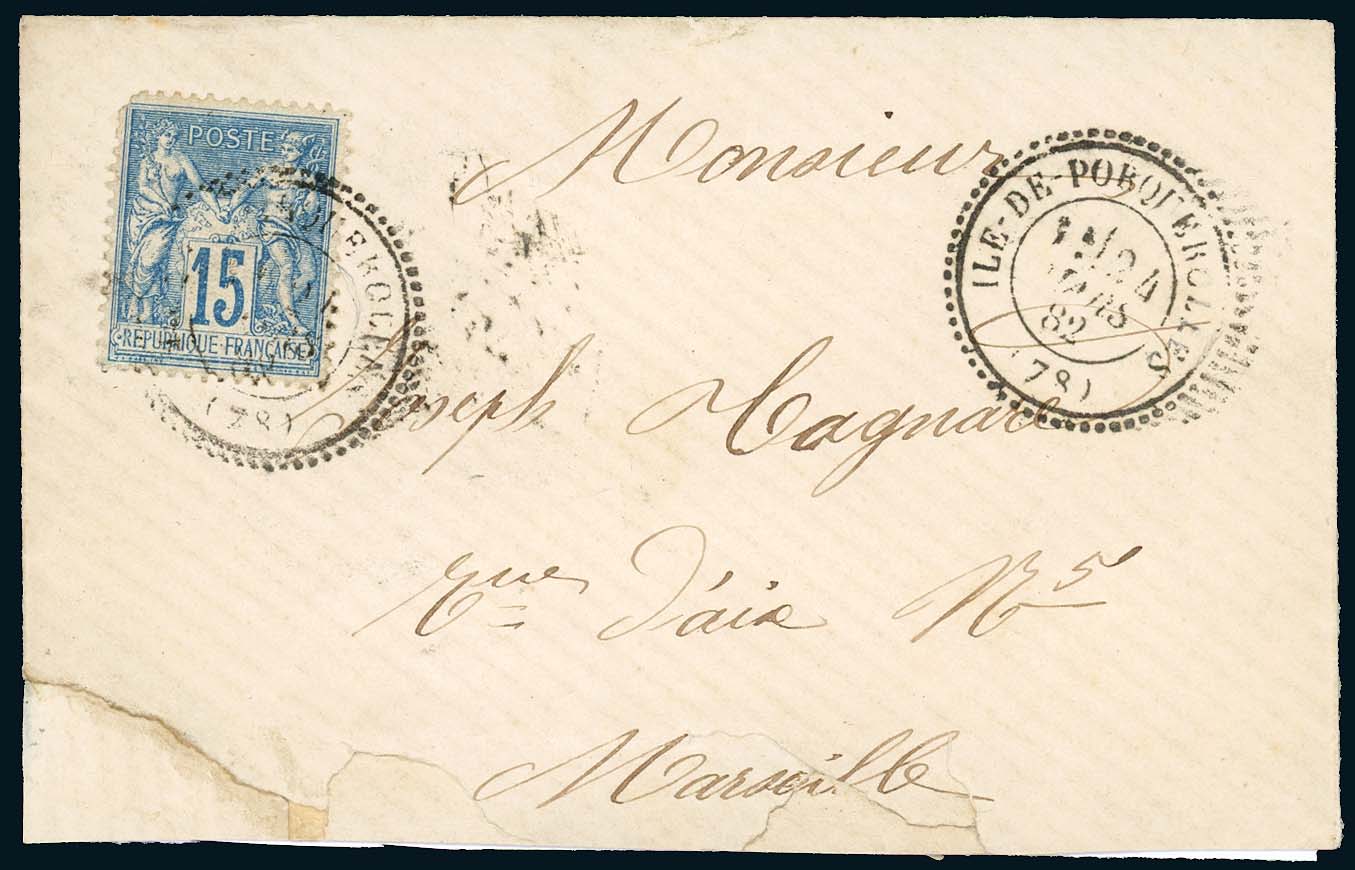 POSTE
15
REPUBLIQUE FRANÇAISE
(78)
ILE-DE-PORQUEROLLES
24
MARS
82
(78)
Monsieur
Joseph Cagnard
Rue d'aix N 5
Marseille